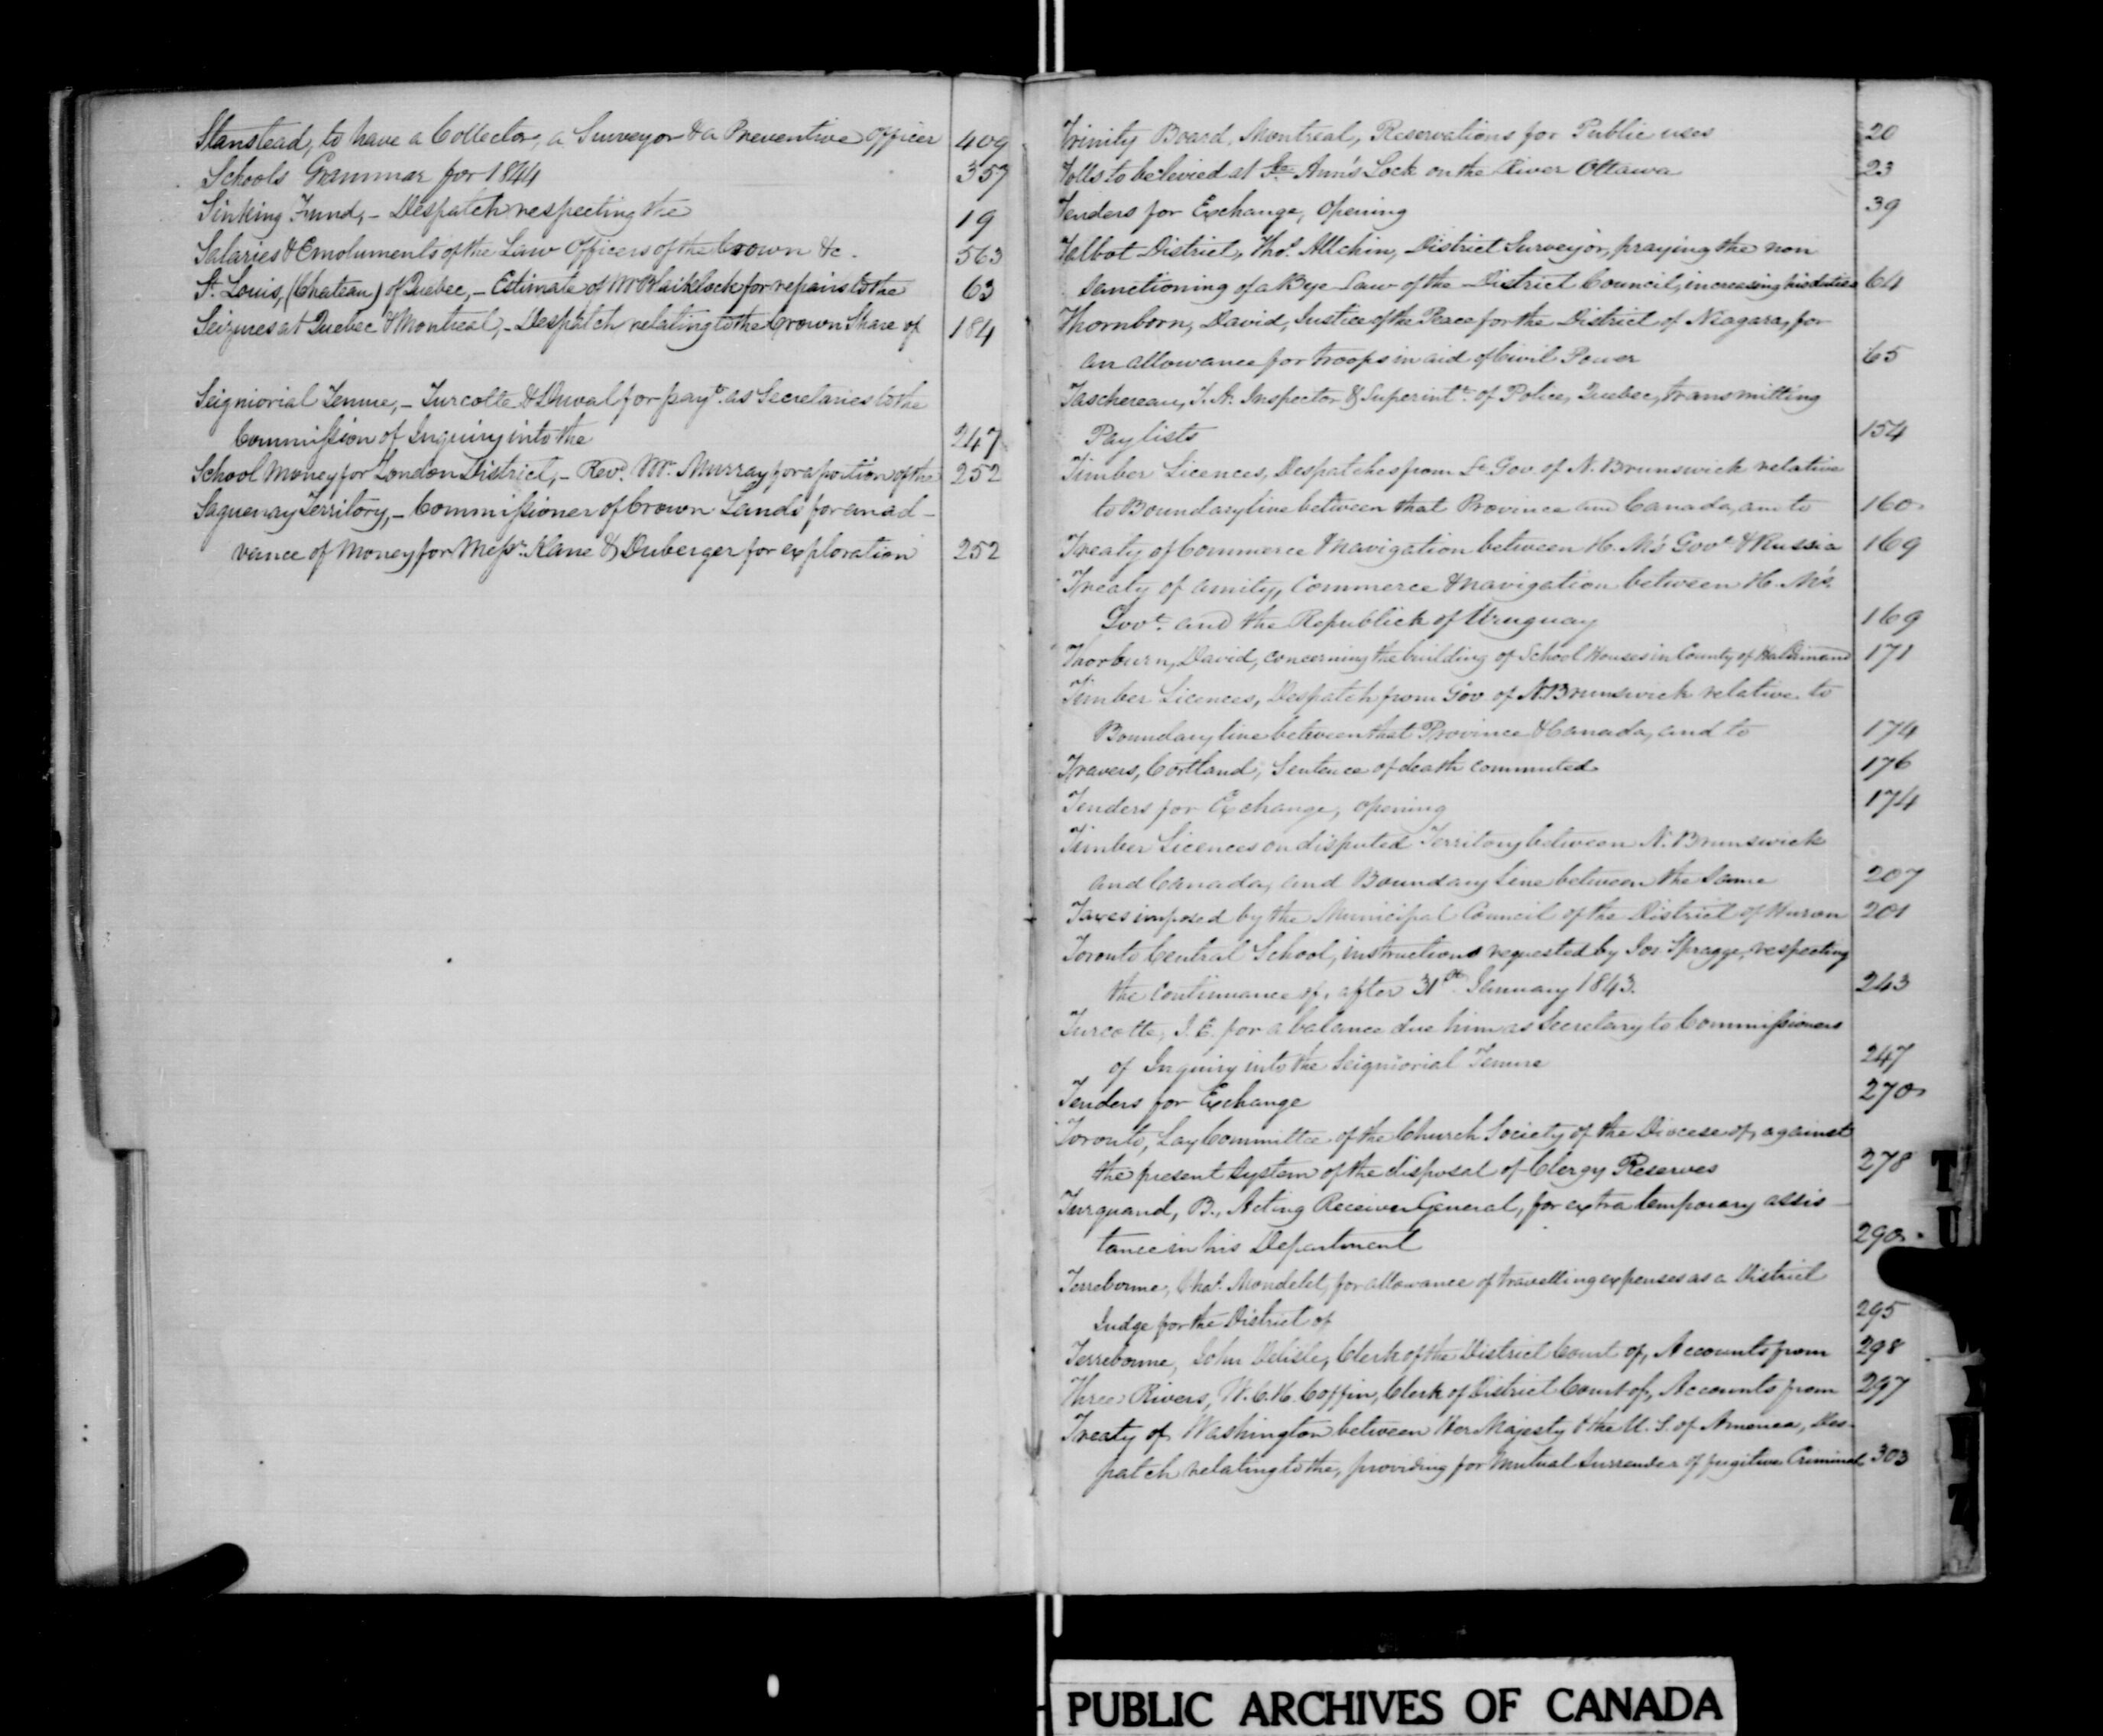 Stanstead, to have a Collector, a Surveyor & a Preventive Officer 409
Schools Grammar for 1844 357
Sinking Fund, – Despatch respecting the 19
Salaries & Emoluments of the Law Officers of the Crown &c. 563
St. Louis, (Chateau) of Quebec, – Estimate of Mr Blaiklock for repairs to the 63
Seizures at Quebec & Montreal, – Despatch relating to the Crown Share of 184
Seigniorial Tenure, – Turcotte & Duval for payt. as Secretaries to the
Commission of Inquiry into the 247
School Money for London District, – Revd. Mr. Murray for a portion of the 252
Saguenay Territory, – Commissioner of Crown Lands for an ad-
vance of Money for Messrs. Kane & Duberger for exploration 252
Trinity Board, Montreal, Reservations for Public uses 20
Tolls to be levied at Ste. Ann's Lock on the River Ottawa 23
Tenders for Exchange, opening 39
Talbot District, Thos. Allchin, District Surveyor, praying the non
sanctioning of a Bye-Law of the District Council, increasing his duties 64
Thornborn, David, Justice of the Peace for the District of Niagara, for
an allowance for troops in aid of Civil Power 65
Taschereau, J. A. Inspector & Superintt. of Police, Quebec, transmitting
Pay lists 154
Timber Licences, Despatches from Lt. Gov. of N. Brunswick relative
to Boundary line between that Province and Canada, and to 160
Treaty of Commerce & Navigation between H. M's Govt. & Russia 169
Treaty of amity, Commerce & navigation between H. M's.
Govt. and the Republick of Uruguay 169
Thorburn, David, concerning the building of School Houses in County of Haldimand 171
Timber Licences, Despatch from Gov of N. Brunswick relative to
Boundary line between that Province & Canada, and to 174
Travers, Cortland, Sentence of death commuted 176
Tenders for Exchange, opening 174
Timber Licences on disputed Territory between N. Brunswick
and Canada, and Boundary Line between the same 207
Taxes imposed by the Municipal Council of the District of Huron 201
Toronto Central School, instructions requested by Jos. Spragge, respecting
the continuance of, after 31st. January 1843. 243
Turcotte, J. E. for a balance due him as Secretary to Commissioners
of Inquiry into the Seigniorial Tenure 247
Tenders for Exchange 270
Toronto, Lay Committee of the Church Society of the Diocese of, against
the present system of the disposal of Clergy Reserves 278
Turquand, B., Acting Receiver General, for extra temporary assis-
tance in his Department 290
Terrebonne, Chas. Mondelet, for allowance of travelling expenses as a District
Judge for the District of 295
Terrebonne, John Delisle, Clerk of the District Court of, Accounts from 298
Three Rivers, W. C. H. Coffin, Clerk of District Court of, Accounts from 297
Treaty of Washington between Her Majesty & the U. S. of America, Des-
patch relating to the, providing for Mutual Surrender of fugitive Criminals 303
T
U
PUBLIC ARCHIVES OF CANADA